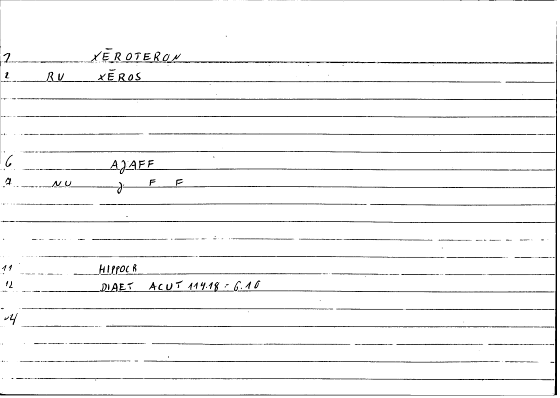 1 XĒROTERON
2 RU XĒROS
6 AJAFF
9 NU J F F
11 HIPPOCR
12 DIAET ACUT 114.18 = 6.10